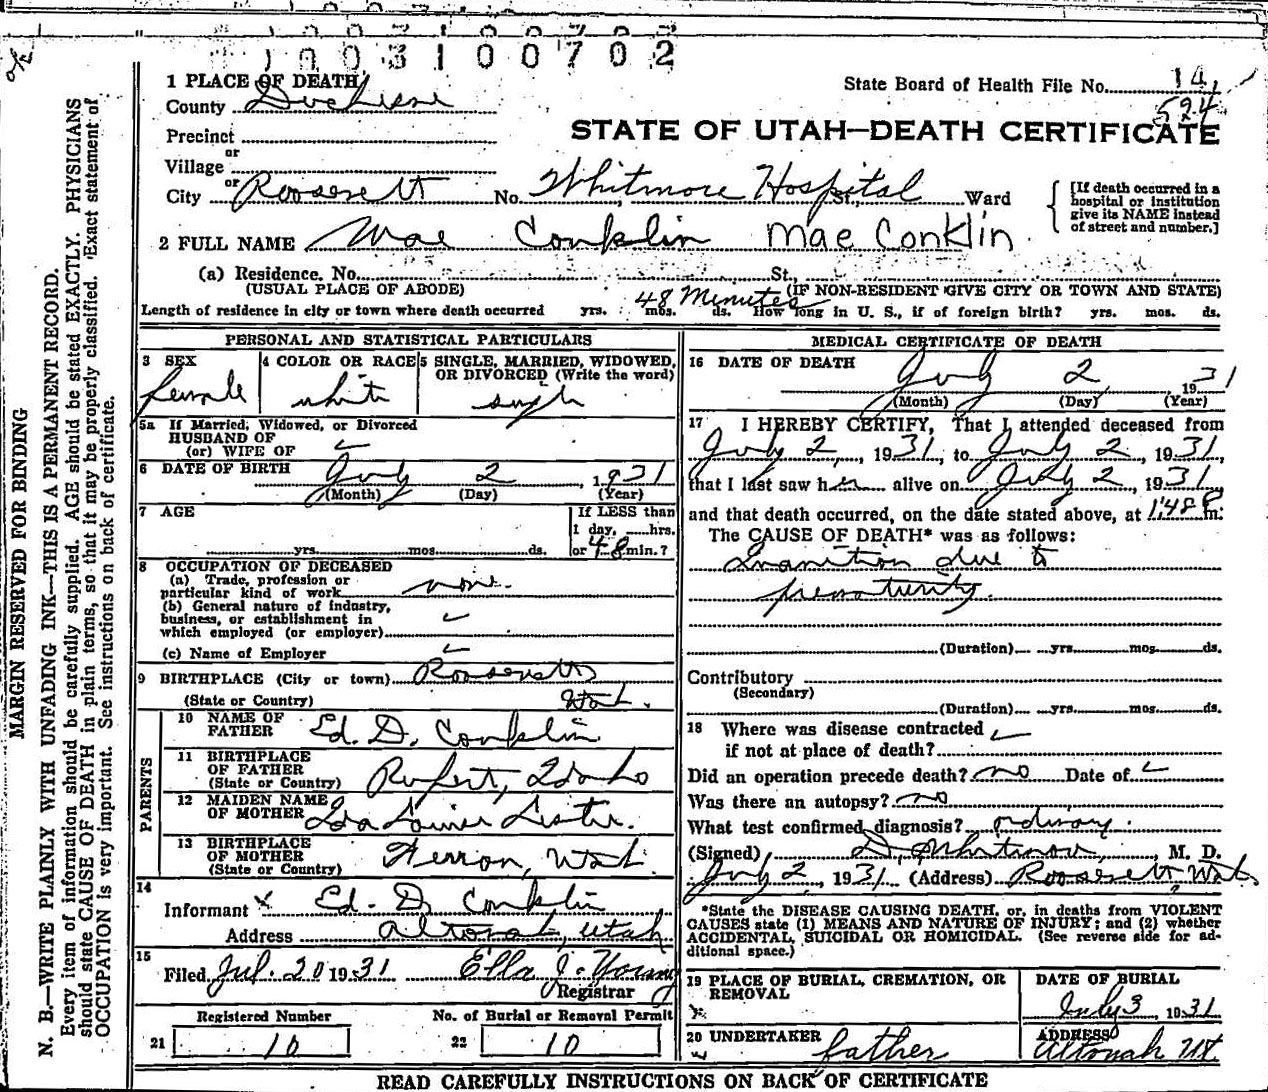 1003100702
1 PLACE OF DEATH
State Board of Health File No. 14
County Duchesne
524
Precinct
STATE OF UTAH—DEATH CERTIFICATE
or
Village
or
City Roosevelt No. Whitmore Hospital St., Ward
[If death occurred in a
hospital or institution
give its NAME instead
of street and number.]
2 FULL NAME Mae Conklin Mae Conklin
(a) Residence. No. St.
(USUAL PLACE OF ABODE) (IF NON-RESIDENT GIVE CITY OR TOWN AND STATE)
48 Minutes
Length of residence in city or town where death occurred yrs. mos. ds. How long in U. S., if of foreign birth? yrs. mos. ds.
PERSONAL AND STATISTICAL PARTICULARS
3 SEX
female
4 COLOR OR RACE
white
5 SINGLE, MARRIED, WIDOWED,
OR DIVORCED (Write the word)
single
5a If Married, Widowed, or Divorced
HUSBAND OF
(or) WIFE OF
6 DATE OF BIRTH July 2, 1931
(Month) (Day) (Year)
7 AGE
If LESS than
1 day, hrs.
yrs. mos. ds. or 48 min.?
8 OCCUPATION OF DECEASED
(a) Trade, profession or
particular kind of work none.
(b) General nature of industry,
business, or establishment in
which employed (or employer)
(c) Name of Employer
9 BIRTHPLACE (City or town) Roosevelt
(State or Country) Utah.
PARENTS
10 NAME OF
FATHER Ed. D. Conklin
11 BIRTHPLACE
OF FATHER
(State or Country) Rupert, Idaho
12 MAIDEN NAME
OF MOTHER Ida Lister.
13 BIRTHPLACE
OF MOTHER
(State or Country) Ferron, Utah
14
Informant x Ed. D. Conklin
Address Altonah, Utah
15
Filed Jul. 20 1931 Ella J. Young
Registrar
Registered Number No. of Burial or Removal Permit
21 10 22 10
MEDICAL CERTIFICATE OF DEATH
16 DATE OF DEATH July 2, 1931
(Month) (Day) (Year)
17 I HEREBY CERTIFY, That I attended deceased from
July 2, 1931, to July 2, 1931,
that I last saw her alive on July 2, 1931
and that death occurred, on the date stated above, at 1:48 P m.
The CAUSE OF DEATH* was as follows:
Inanition due to
prematurity.
(Duration) yrs. mos. ds.
Contributory
(Secondary)
(Duration) yrs. mos. ds.
18 Where was disease contracted
if not at place of death?
Did an operation precede death? no Date of
Was there an autopsy? no
What test confirmed diagnosis? ordinary.
(Signed) Whitmore, M. D.
July 2, 1931 (Address) Roosevelt, Utah
*State the DISEASE CAUSING DEATH, or, in deaths from VIOLENT
CAUSES state (1) MEANS AND NATURE OF INJURY; and (2) whether
ACCIDENTAL, SUICIDAL OR HOMICIDAL. (See reverse side for ad-
ditional space.)
19 PLACE OF BURIAL, CREMATION, OR
REMOVAL
DATE OF BURIAL
July 3 1931
20 UNDERTAKER father
ADDRESS
Altonah Ut
READ CAREFULLY INSTRUCTIONS ON BACK OF CERTIFICATE
MARGIN RESERVED FOR BINDING
N. B.—WRITE PLAINLY WITH UNFADING INK—THIS IS A PERMANENT RECORD.
Every item of information should be carefully supplied. AGE should be stated EXACTLY. PHYSICIANS
should state CAUSE OF DEATH in plain terms, so that it may be properly classified. Exact statement of
OCCUPATION is very important. See instructions on back of certificate.